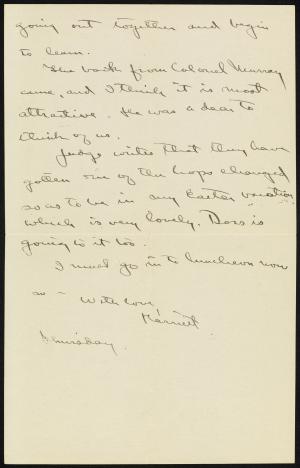 going out together and begin
to learn.
The book from Colonel Murray
came, and I think it is most
attractive. He was a dear to
think of us.
Judge writes that they have
gotten one of the hops changed
so as to be in my Easter vacation
which is very lovely. Dors is
going to it too.
I must go in to luncheon now
so —
With love,
Harriett
Thursday.